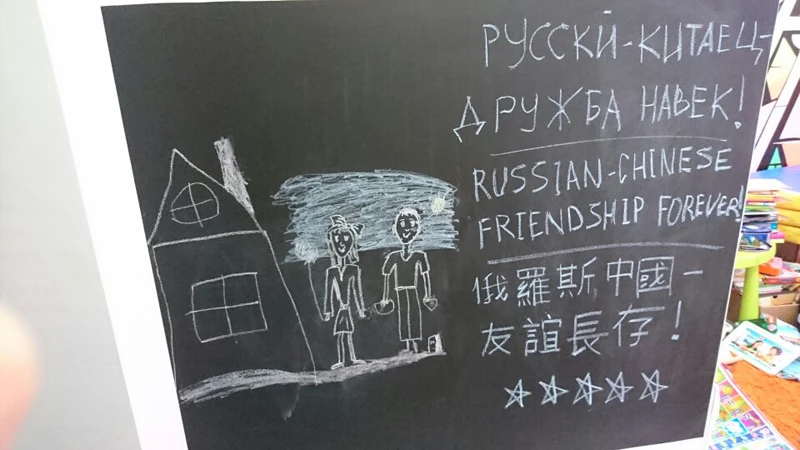 РУССКИ-КИТАЕЦ-
ДРУЖБА НАВЕК!
RUSSIAN-CHINESE
FRIENDSHIP FOREVER!
俄羅斯,中國-
友誼長存!